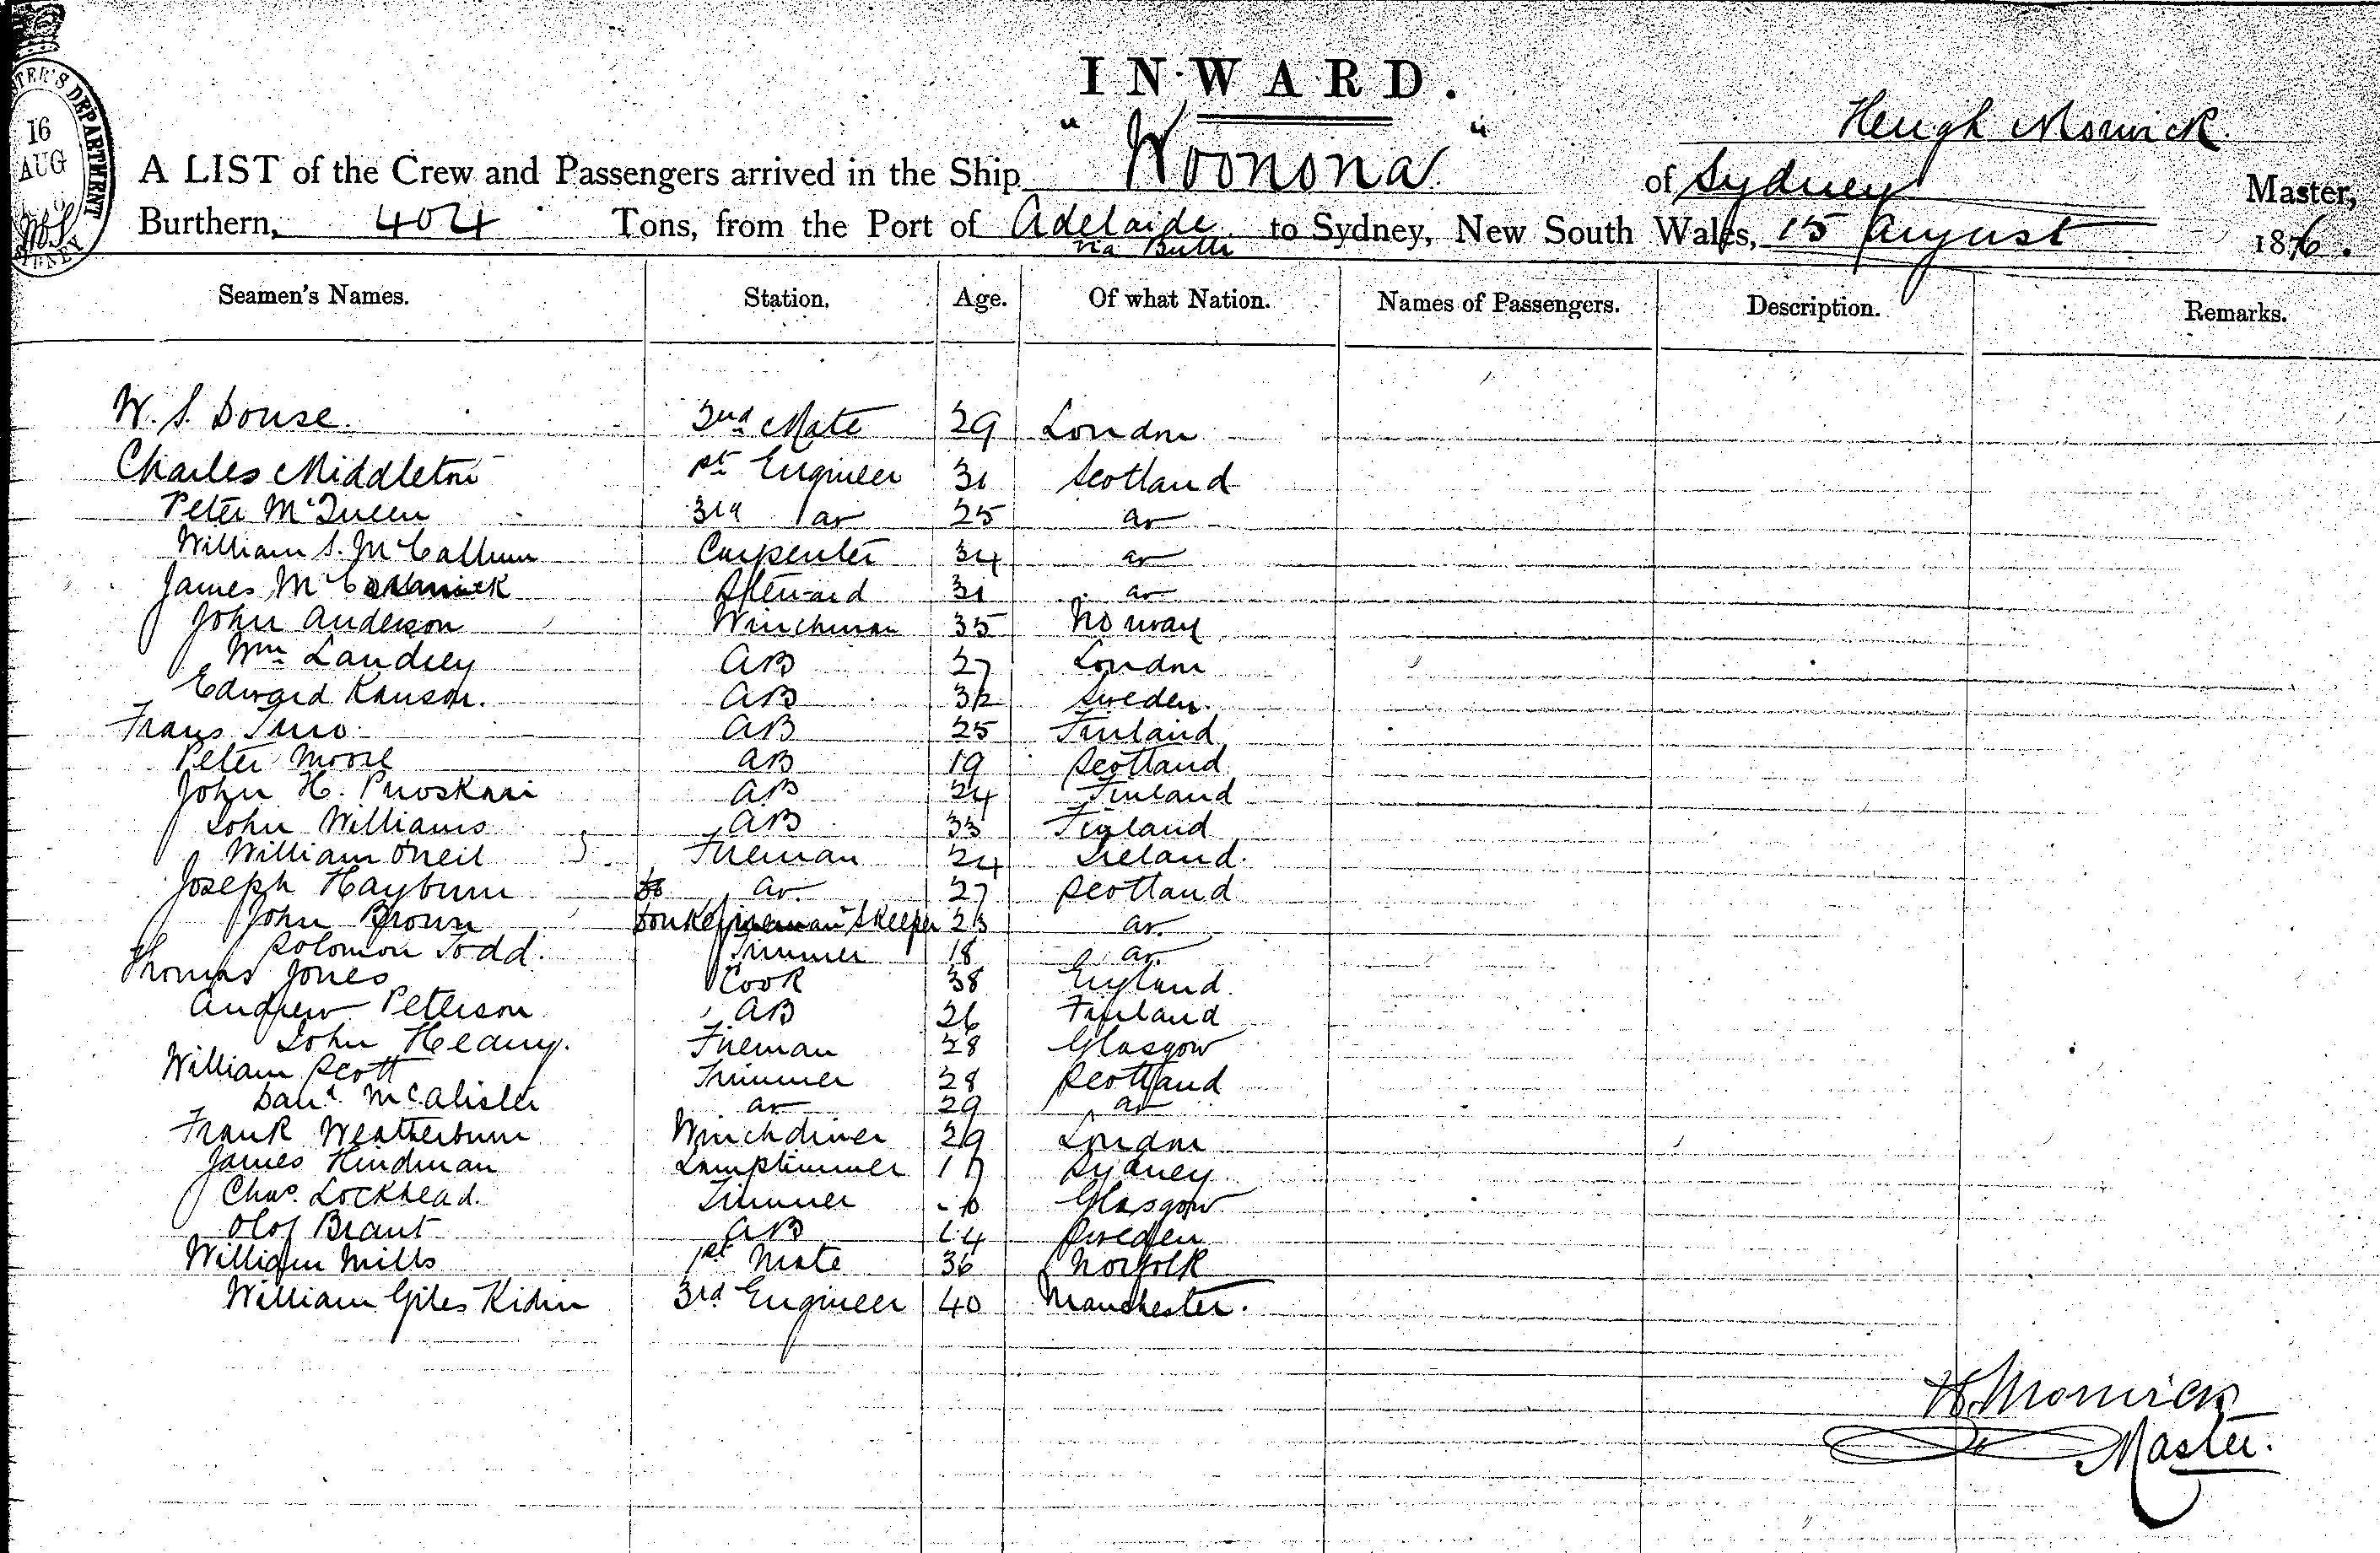 INWARD.
TER'S DEPARTMENT
16
AUG
SYDNEY
Hugh Monnick
A LIST of the Crew and Passengers arrived in the Ship "Woonona" of Sydney Master,
Burthern, 404 Tons, from the Port of Adelaide via Bulli to Sydney, New South Wales, 15 August 1876.
Seamen's Names. Station. Age. Of what Nation. Names of Passengers. Description. Remarks.
W. S. Douse 2nd Mate 29 London
Charles Middleton 1st Engineer 31 Scotland
Peter McQueen 3rd do 25 do
William S. McCallum Carpenter 34 do
James McCormick Steward 31 do
John Anderson Winchman 35 Norway
Wm Landrey AB 27 London
Edward Kanson. AB 32 Sweden.
Frans AB 25 Finland
Peter Moore AB 19 Scotland
John H. AB 24 Finland
John Williams AB 33 Finland
William O'Neil Fireman 24 Ireland.
Joseph Hayburn do 27 Scotland
John Brown 23 do.
Solomon Todd. Trimmer 18 do.
Thomas Jones Cook 38 England.
Andrew Peterson AB 26 Finland
John Heany. Fireman 28 Glasgow
William Scott Trimmer 28 Scotland
Danl McAlister do 29 do
Frank Weatherburn Winchdriver 29 London
James Hindman Lamptrimmer 17 Sydney
Chas. Lockhead. Trimmer Glasgow
Olof Brant AB 24 Sweden
William Mills 1st Mate 36 Norfolk
William Giles 3rd Engineer 40 Manchester.
H. Monnick
Master.